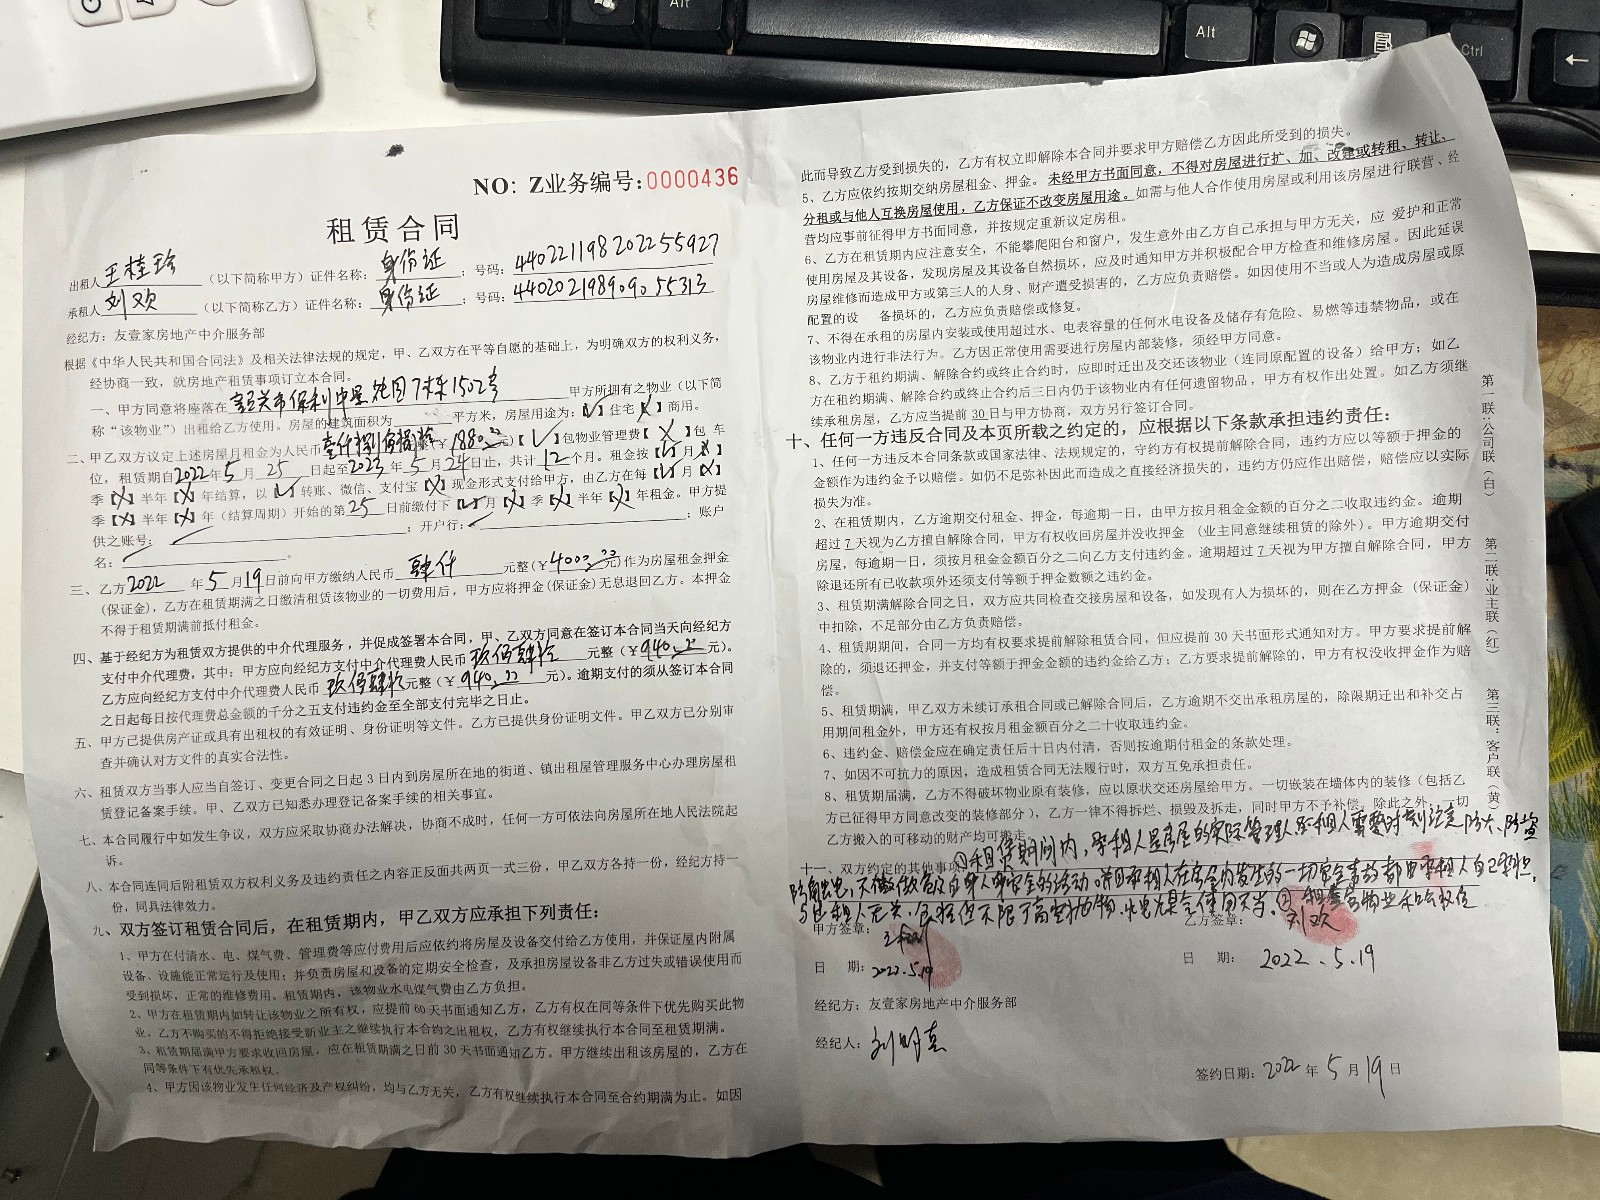 Alt
Alt
Ctrl
NO: Z业务编号:0000436
租赁合同
出租人 王桂珍 (以下简称甲方)证件名称: 身份证 ;号码: 440221198202255927
承租人 刘欢 (以下简称乙方)证件名称: 身份证 ;号码: 440202198909055313
经纪方:友壹家房地产中介服务部
根据《中华人民共和国合同法》及相关法律法规的规定,甲、乙双方在平等自愿的基础上,为明确双方的权利义务,
经协商一致,就房地产租赁事项订立本合同。
一、甲方同意将座落在 韶关市保利中星花园7栋1502号 甲方所拥有之物业(以下简
称“该物业”)出租给乙方使用。房屋的建筑面积为 平方米,房屋用途为:【✓】住宅【X】商用。
二、甲乙双方议定上述房屋月租金为人民币 壹仟捌佰捌拾 (¥1880.00元)【✓】包物业管理费【X】包 车
位,租赁期自2022年5月25日起至2023年5月24日止,共计12个月。租金按【✓】月【X】
季【X】半年【X】年结算,以【✓】转账、微信、支付宝【X】现金形式支付给甲方,由乙方在每【✓】月【X】
季【X】半年【X】年(结算周期)开始的第25日前缴付下【✓】月【X】季【X】半年【X】年租金。甲方提
供之账号: ;开户行: ;账户
名: 。
三、乙方2022年5月19日前向甲方缴纳人民币 肆仟 元整(¥4000.00元)作为房屋租金押金
(保证金),乙方在租赁期满之日缴清租赁该物业的一切费用后,甲方应将押金(保证金)无息退回乙方。本押金
不得于租赁期满前抵付租金。
四、基于经纪方为租赁双方提供的中介代理服务,并促成签署本合同,甲、乙双方同意在签订本合同当天向经纪方
支付中介代理费,其中:甲方应向经纪方支付中介代理费人民币 玖佰肆拾 元整(¥940.00元)。
乙方应向经纪方支付中介代理费人民币 玖佰肆拾 元整(¥940.00元)。逾期支付的须从签订本合同
之日起每日按代理费总金额的千分之五支付违约金至全部支付完毕之日止。
五、甲方已提供房产证或具有出租权的有效证明、身份证明等文件。乙方已提供身份证明文件。甲乙双方已分别审
查并确认对方文件的真实合法性。
六、租赁双方当事人应当自签订、变更合同之日起3日内到房屋所在地的街道、镇出租屋管理服务中心办理房屋租
赁登记备案手续。甲、乙双方已知悉办理登记备案手续的相关事宜。
七、本合同履行中如发生争议,双方应采取协商办法解决,协商不成时,任何一方可依法向房屋所在地人民法院起
诉。
八、本合同连同后附租赁双方权利义务及违约责任之内容正反面共两页一式三份,甲乙双方各持一份,经纪方持一
份,同具法律效力。
九、双方签订租赁合同后,在租赁期内,甲乙双方应承担下列责任:
1、甲方在付清水、电、煤气费、管理费等应付费用后应依约将房屋及设备交付给乙方使用,并保证屋内附属
设备、设施能正常运行及使用;并负责房屋和设备的定期安全检查,及承担房屋设备非乙方过失或错误使用而
受到损坏,正常的维修费用。租赁期内,该物业水电煤气费由乙方负担。
2、甲方在租赁期内如转让该物业之所有权,应提前60天书面通知乙方,乙方有权在同等条件下优先购买此物
业。乙方不购买的不得拒绝接受新业主之继续执行本合约之出租权,乙方有权继续执行本合同至租赁期满。
3、租赁期届满甲方要求收回房屋,应在租赁期满之日前30天书面通知乙方。甲方继续出租该房屋的,乙方在
同等条件下有优先承租权。
4、甲方因该物业发生任何经济及产权纠纷,均与乙方无关,乙方有权继续执行本合同至合约期满为止。如因
此而导致乙方受到损失的,乙方有权立即解除本合同并要求甲方赔偿乙方因此所受到的损失。
5、乙方应依约按期交纳房屋租金、押金。未经甲方书面同意,不得对房屋进行扩、加、改建或转租、转让、
分租或与他人互换房屋使用,乙方保证不改变房屋用途。如需与他人合作使用房屋或利用该房屋进行联营、经
营均应事前征得甲方书面同意,并按规定重新议定房租。
6、乙方在租赁期内应注意安全,不能攀爬阳台和窗户,发生意外由乙方自己承担与甲方无关,应 爱护和正常
使用房屋及其设备,发现房屋及其设备自然损坏,应及时通知甲方并积极配合甲方检查和维修房屋。因此延误
房屋维修而造成甲方或第三人的人身、财产遭受损害的,乙方应负责赔偿。如因使用不当或人为造成房屋或原
配置的设 备损坏的,乙方应负责赔偿或修复。
7、不得在承租的房屋内安装或使用超过水、电表容量的任何水电设备及储存有危险、易燃等违禁物品,或在
该物业内进行非法行为。乙方因正常使用需要进行房屋内部装修,须经甲方同意。
8、乙方于租约期满、解除合约或终止合约时,应即时迁出及交还该物业(连同原配置的设备)给甲方;如乙
方在租约期满、解除合约或终止合约后三日内仍于该物业内有任何遗留物品,甲方有权作出处置。如乙方须继
续承租房屋,乙方应当提前30日与甲方协商,双方另行签订合同。
十、任何一方违反合同及本页所载之约定的,应根据以下条款承担违约责任:
1、任何一方违反本合同条款或国家法律、法规规定的,守约方有权提前解除合同,违约方应以等额于押金的
金额作为违约金予以赔偿。如仍不足弥补因此而造成之直接经济损失的,违约方仍应作出赔偿,赔偿应以实际
损失为准。
2、在租赁期内,乙方逾期交付租金、押金,每逾期一日,由甲方按月租金金额的百分之二收取违约金。逾期
超过7天视为乙方擅自解除合同,甲方有权收回房屋并没收押金 (业主同意继续租赁的除外)。甲方逾期交付
房屋,每逾期一日,须按月租金金额百分之二向乙方支付违约金。逾期超过7天视为甲方擅自解除合同,甲方
除退还所有已收款项外还须支付等额于押金数额之违约金。
3、租赁期满解除合同之日,双方应共同检查交接房屋和设备,如发现有人为损坏的,则在乙方押金(保证金)
中扣除,不足部分由乙方负责赔偿。
4、租赁期期间,合同一方均有权要求提前解除租赁合同,但应提前30天书面形式通知对方。甲方要求提前解
除的,须退还押金,并支付等额于押金金额的违约金给乙方;乙方要求提前解除的,甲方有权没收押金作为赔
偿。
5、租赁期满,甲乙双方未续订承租合同或已解除合同后,乙方逾期不交出承租房屋的,除限期迁出和补交占
用期间租金外,甲方还有权按月租金额百分之二十收取违约金。
6、违约金、赔偿金应在确定责任后十日内付清,否则按逾期付租金的条款处理。
7、如因不可抗力的原因,造成租赁合同无法履行时,双方互免承担责任。
8、租赁期届满,乙方不得破坏物业原有装修,应以原状交还房屋给甲方。一切嵌装在墙体内的装修(包括乙
方已征得甲方同意改变的装修部分),乙方一律不得拆烂、损毁及拆走,同时甲方不予补偿。除此之外,一切
乙方搬入的可移动的财产均可搬走。
十一、双方约定的其他事项: ①租赁期间内,承租人是房屋的实际管理人,承租人需要时刻注意防火、防盗
防触电,不做危及自身人身安全的活动。并且承租人在房屋内发生的一切安全事故都由承租人自己承担,
与出租人无关,包括但不限于高空抛物、水电煤气使用不当。②租金含物业和
甲方签章:
乙方签章: 刘欢
日 期: 2022.5.19
日 期: 2022.5.19
经纪方:友壹家房地产中介服务部
经纪人:
签约日期:2022年5月19日
第一联:公司联(白)
第二联:业主联(红)
第三联:客户联(黄)